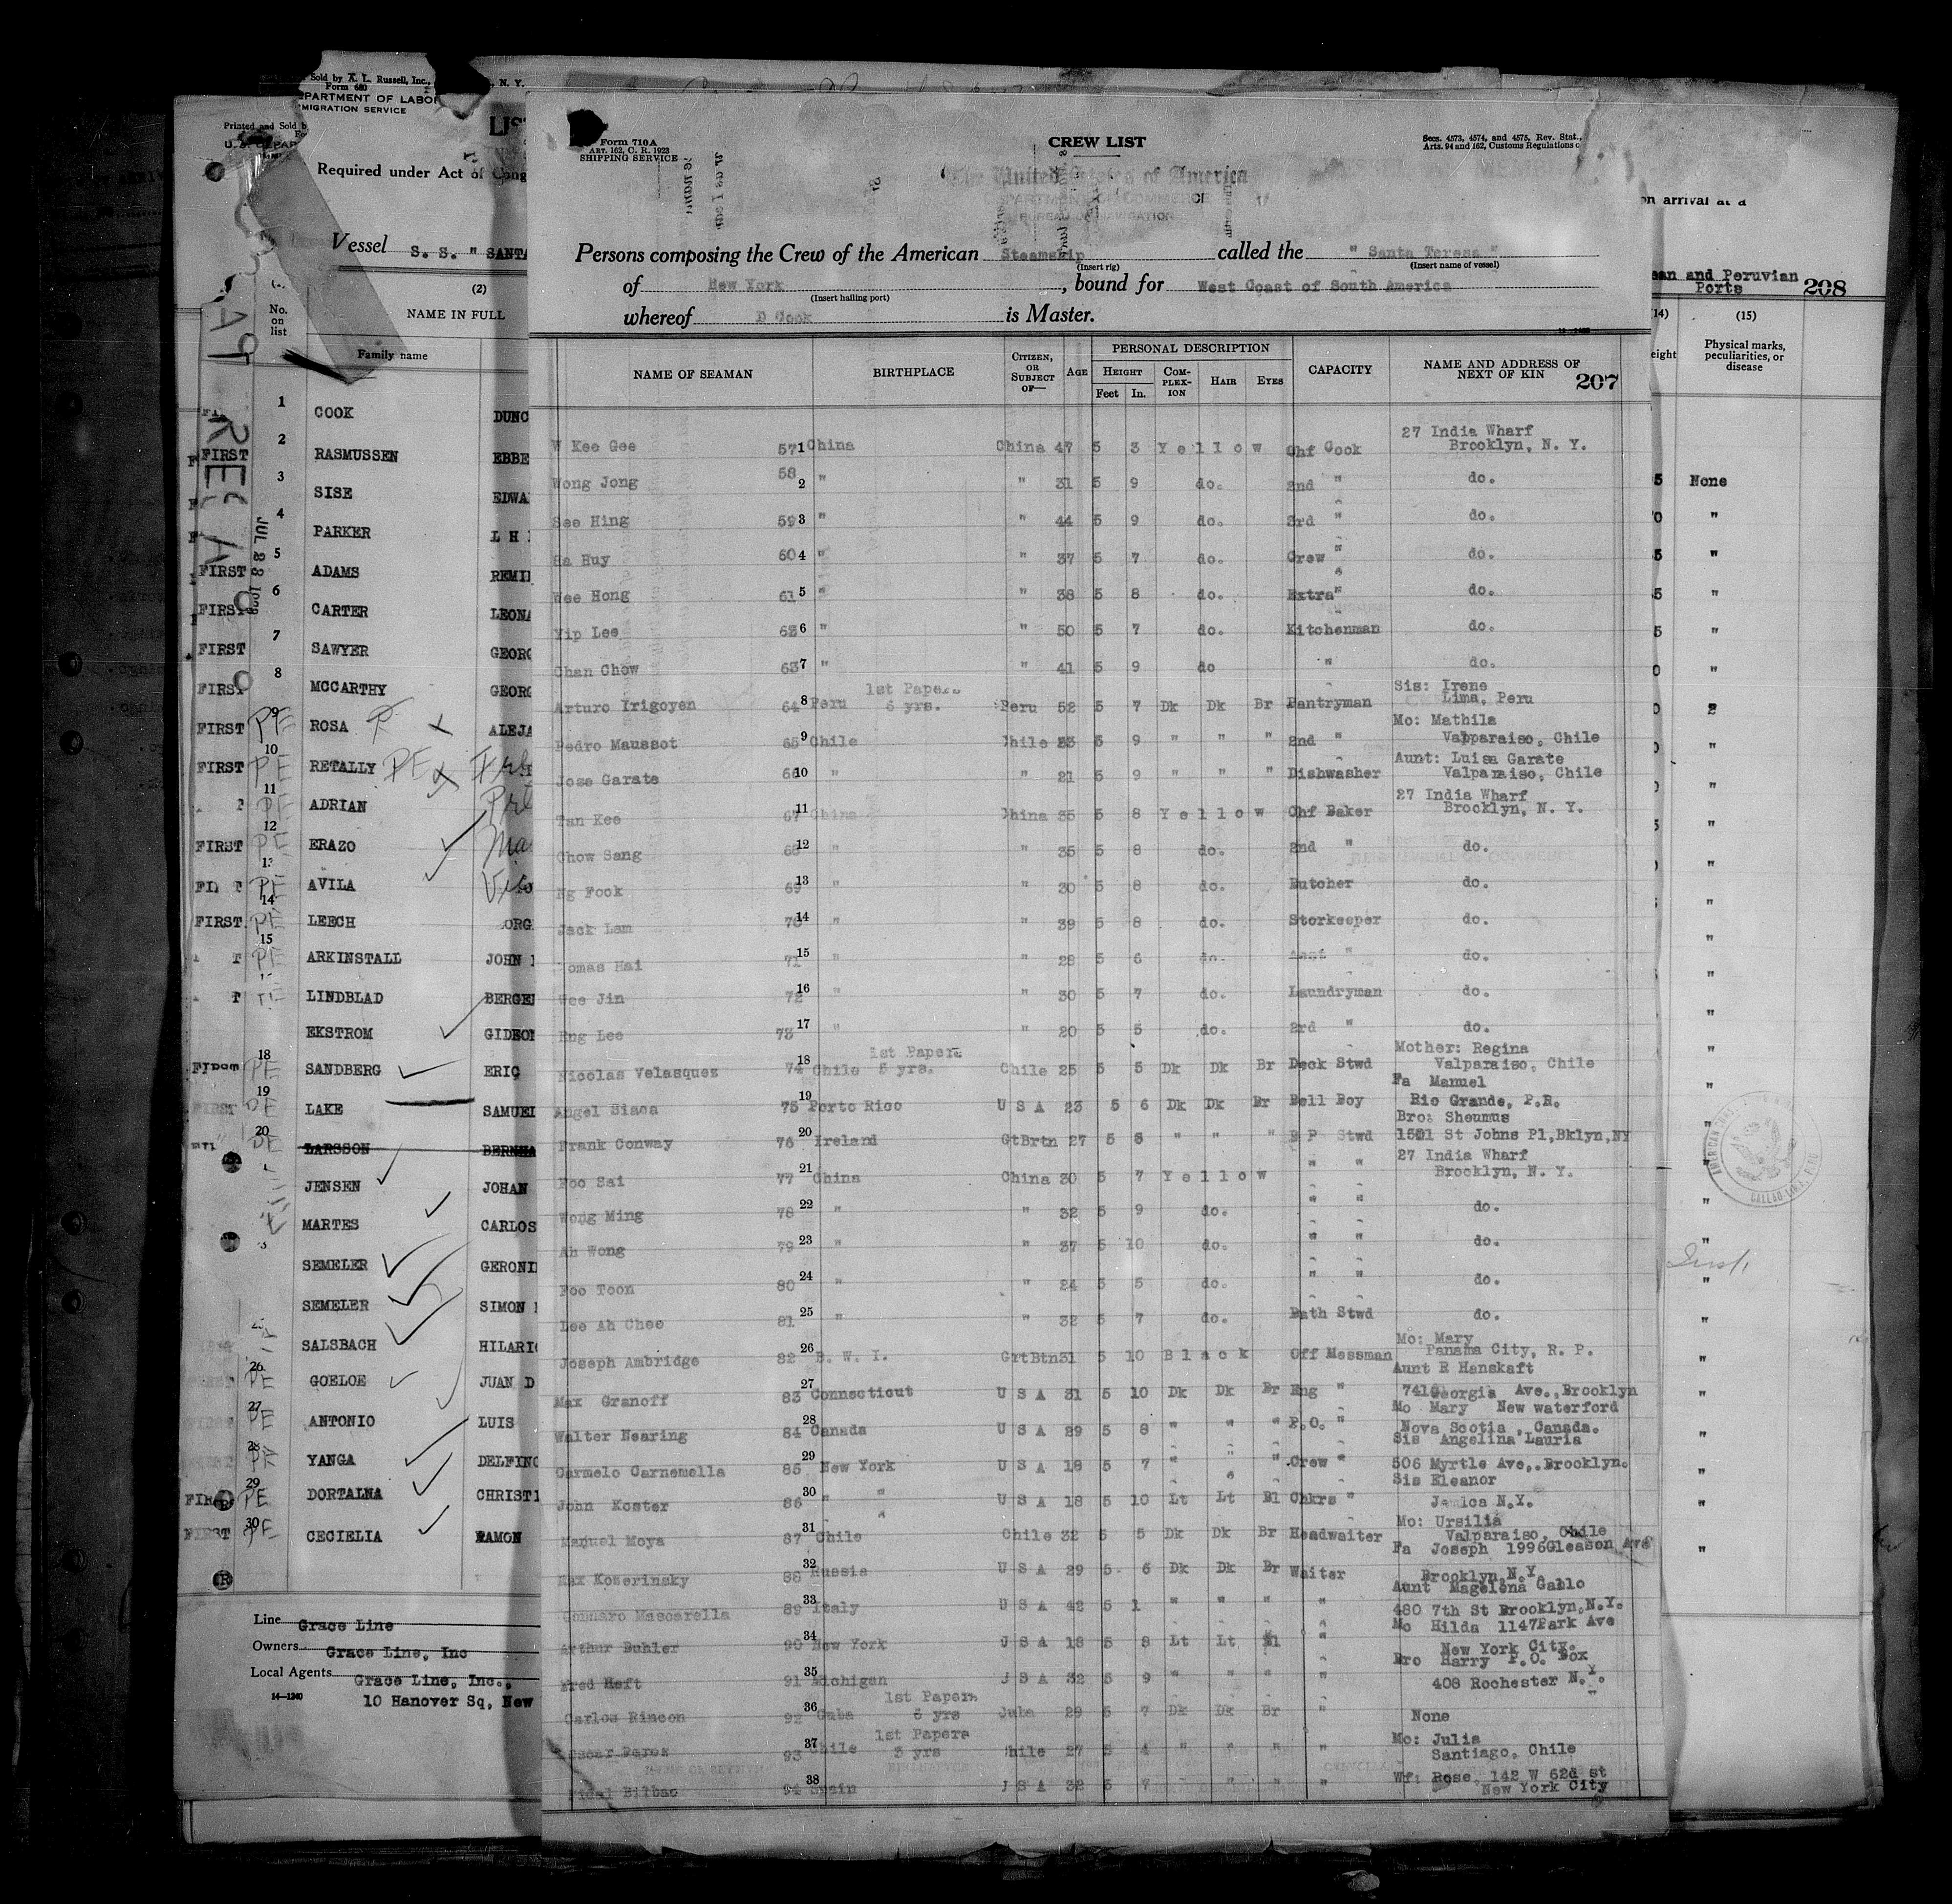 Sold by A. L. Russell, Inc., N. Y.
Form 680
DEPARTMENT OF LABOR
IMMIGRATION SERVICE
Printed and Sold b
Required under Act of Cong
Vessel S. S. " SANTA
(2)
No.
on
list
NAME IN FULL
Family name
1 COOK DUNC
FIRST 2 RASMUSSEN EBBE
3 SISE EDWA
4 PARKER L H
FIRST 5 ADAMS REMI
FIRST 6 CARTER LEONA
FIRST 7 SAWYER GEORG
FIRST 8 MCCARTHY GEORG
FIRST PE 9 ROSA ALEJA
FIRST PE 10 RETALLY PE
PE 11 ADRIAN
FIRST PE 12 ERAZO
PE 13 AVILA
FIRST PE 14 LEECH ORG
PE 15 ARKINSTALL JOHN
LINDBLAD BERGE
EKSTROM GIDEO
PE 18 SANDBERG ERIC
FIRST PE 19 LAKE SAMUEL
PE 20 LARSSON BERNHA
JENSEN JOHAN
MARTES CARLOS
SEMELER GERONI
SEMELER SIMON
SALSBACH HILARI
26 PE GOELOE JUAN D
27 PE ANTONIO LUIS
28 PE YANGA DELFINO
29 PE DORTALNA CHRISTI
FIRST 30 PE CECIELIA RAMON
Line Grace Line
Owners Grace Line, Inc
Local Agents Grace Line, Inc.,
14—1240 10 Hanover Sq, New
Form 710A
ART. 162, C. R. 1923
SHIPPING SERVICE
CREW LIST
Secs. 4573, 4574, and 4575, Rev. Stat.,
Arts. 94 and 162, Customs Regulations o
The United States of America
DEPARTMENT OF COMMERCE
BUREAU OF NAVIGATION
Persons composing the Crew of the American Steamship called the " Santa Teresa "
(Insert rig) (Insert name of vessel)
of New York , bound for West Coast of South America
(Insert hailing port)
whereof D Cook is Master.
NAME OF SEAMAN BIRTHPLACE CITIZEN, OR SUBJECT OF— AGE PERSONAL DESCRIPTION CAPACITY NAME AND ADDRESS OF NEXT OF KIN 207
HEIGHT Feet In. COMPLEXION HAIR EYES
W Kee Gee 57 1 China China 47 5 3 Yellow Chf Cook 27 India Wharf
Brooklyn, N. Y.
Wong Jong 58 2 " " 31 5 9 do. 2nd " do.
See Hing 59 3 " " 44 5 9 do. 3rd " do.
Ha Huy 60 4 " " 37 5 7 do. Crew " do.
Wee Hong 61 5 " " 38 5 8 do. Extra " do.
Yip Lee 6 " " 50 5 7 do. Kitchenman do.
Chan Chow 63 7 " " 41 5 9 do " do.
Arturo Irigoyen 64 8 Peru 1st Papers 6 yrs. Peru 52 5 7 Dk Dk Br Pantryman Sis: Irene
Lima, Peru
Pedro Maussot 65 9 Chile Chile 5 9 " " " 2nd " Mo: Mathila
Valpparaiso, Chile
Jose Garate 66 10 " " 21 5 9 " " " Dishwasher Aunt: Luisa Garate
Valparaiso, Chile
Tan Kee 67 11 China China 35 5 8 Yellow Chf Baker 27 India Wharf
Brooklyn, N. Y.
Chow Sang 68 12 " " 35 5 8 do. 2nd " do.
Ng Fook 69 13 " " 30 5 8 do. Butcher do.
Jack Lam 70 14 " " 39 5 8 do. Storkeeper do.
Tomas Hai 71 15 " " 28 5 6 do. " do.
Wee Jin 72 16 " " 30 5 7 do. Laundryman do.
Eng Lee 73 17 " " 20 5 5 do. 2rd " do.
Nicolas Velasquez 74 18 Chile 1st Papers 5 yrs. Chile 25 5 5 Dk Dk Br Deck Stwd Mother: Regina
Valparaiso, Chile
Angel Siaca 75 19 Porto Rico U S A 23 5 6 Dk Dk Br Bell Boy Fa Manuel
Rio Grande, P.R.
Frank Conway 76 20 Ireland GtBrtn 27 5 8 " " " B P Stwd Bro: Sheumus
St Johns Pl, Bklyn, NY
Foo Sai 77 21 China China 30 5 7 Yellow " " 27 India Wharf
Brooklyn, N. Y.
Wong Ming 78 22 " " 32 5 9 do. " " do.
Ah Wong 79 23 " " 37 5 10 do. " " do.
Foo Toon 80 24 " " 24 5 5 do. " " do.
Lee Ah Chee 81 25 " " 32 5 7 do. Bath Stwd do.
Joseph Ambridge 82 26 B. W. I. GrtBtn 31 5 10 Black Off Messman Mo: Mary
Panama City, R. P.
Max Granoff 83 27 Connecticut U S A 31 5 10 Dk Dk Br Eng " Aunt R Hanskaft
Georgia Ave., Brooklyn
Walter Nearing 84 28 Canada U S A 29 5 8 " " " P.O. " Mo Mary New waterford
Nova Scotia, Canada.
Carmelo Carnemella 85 29 New York U S A 18 5 7 " " " Crew " Sis Angelina Lauria
506 Myrtle Ave,. Brooklyn.
John Koster 86 30 " " U S A 18 5 10 Lt Lt Bl Chkrs " Sis Eleanor
Jamica N.Y.
Manuel Moya 87 31 Chile Chile 32 5 5 Dk Dk Br Headwaiter Mo: Ursilia
Valparaiso, Chile
Max Koserinsky 88 32 Russia U S A 29 5 6 Dk Dk Br Waiter Fa Joseph 1996 Gleason Ave
Brooklyn, N.Y.
Gennaro Mascarella 89 33 Italy U S A 42 5 1 " " " " Aunt Magelena Gallo
480 7th St Brooklyn, N.Y.
Arthur Buhler 90 34 New York U S A 18 5 8 Lt Lt Bl " Mo Hilda 1147 Park Ave
New York City.
Fred Heft 91 35 Michigan U S A 32 5 9 " " " " Bro Harry P.O. Box
408 Rochester N.Y.
Carlos Rincon 92 36 Cuba 1st Papers 6 yrs Cuba 29 5 7 Dk Dk Br " None
Oscar Perez 93 37 Chile 1st Papers 3 yrs Chile 27 5 4 " " " " Mo: Julia
Santiago, Chile
Fidel Bilbao 94 38 Spain U S A 32 5 7 " " " Wf: Rose, 142 W 62d st
New York City
on arrival at a
ean and Peruvian
Ports 208
(14) (15)
eight Physical marks,
peculiarities, or
disease
None
AMERICAN CONSULATE
CALLAO-LIMA, PERU